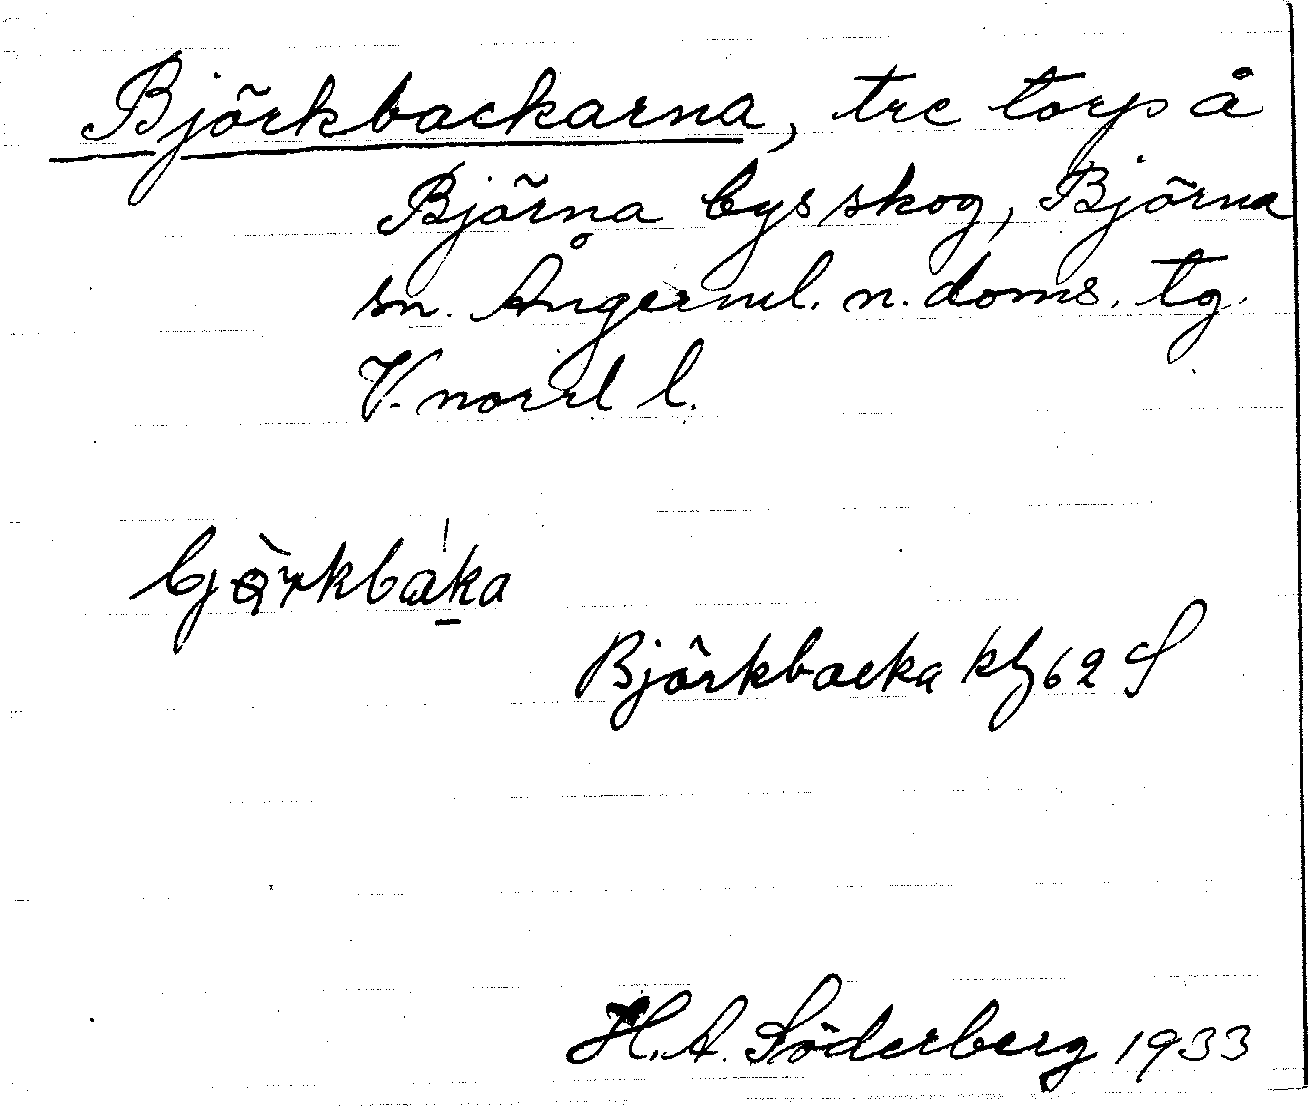 Björkbackarna, tre torp å
Björna bys skog, Björna
sn. Ångerml. n. doms. tg.
V. norrl l.
bjö̀rkbáka
Björkbacka kbl 62 S
H. A. Söderberg 1933